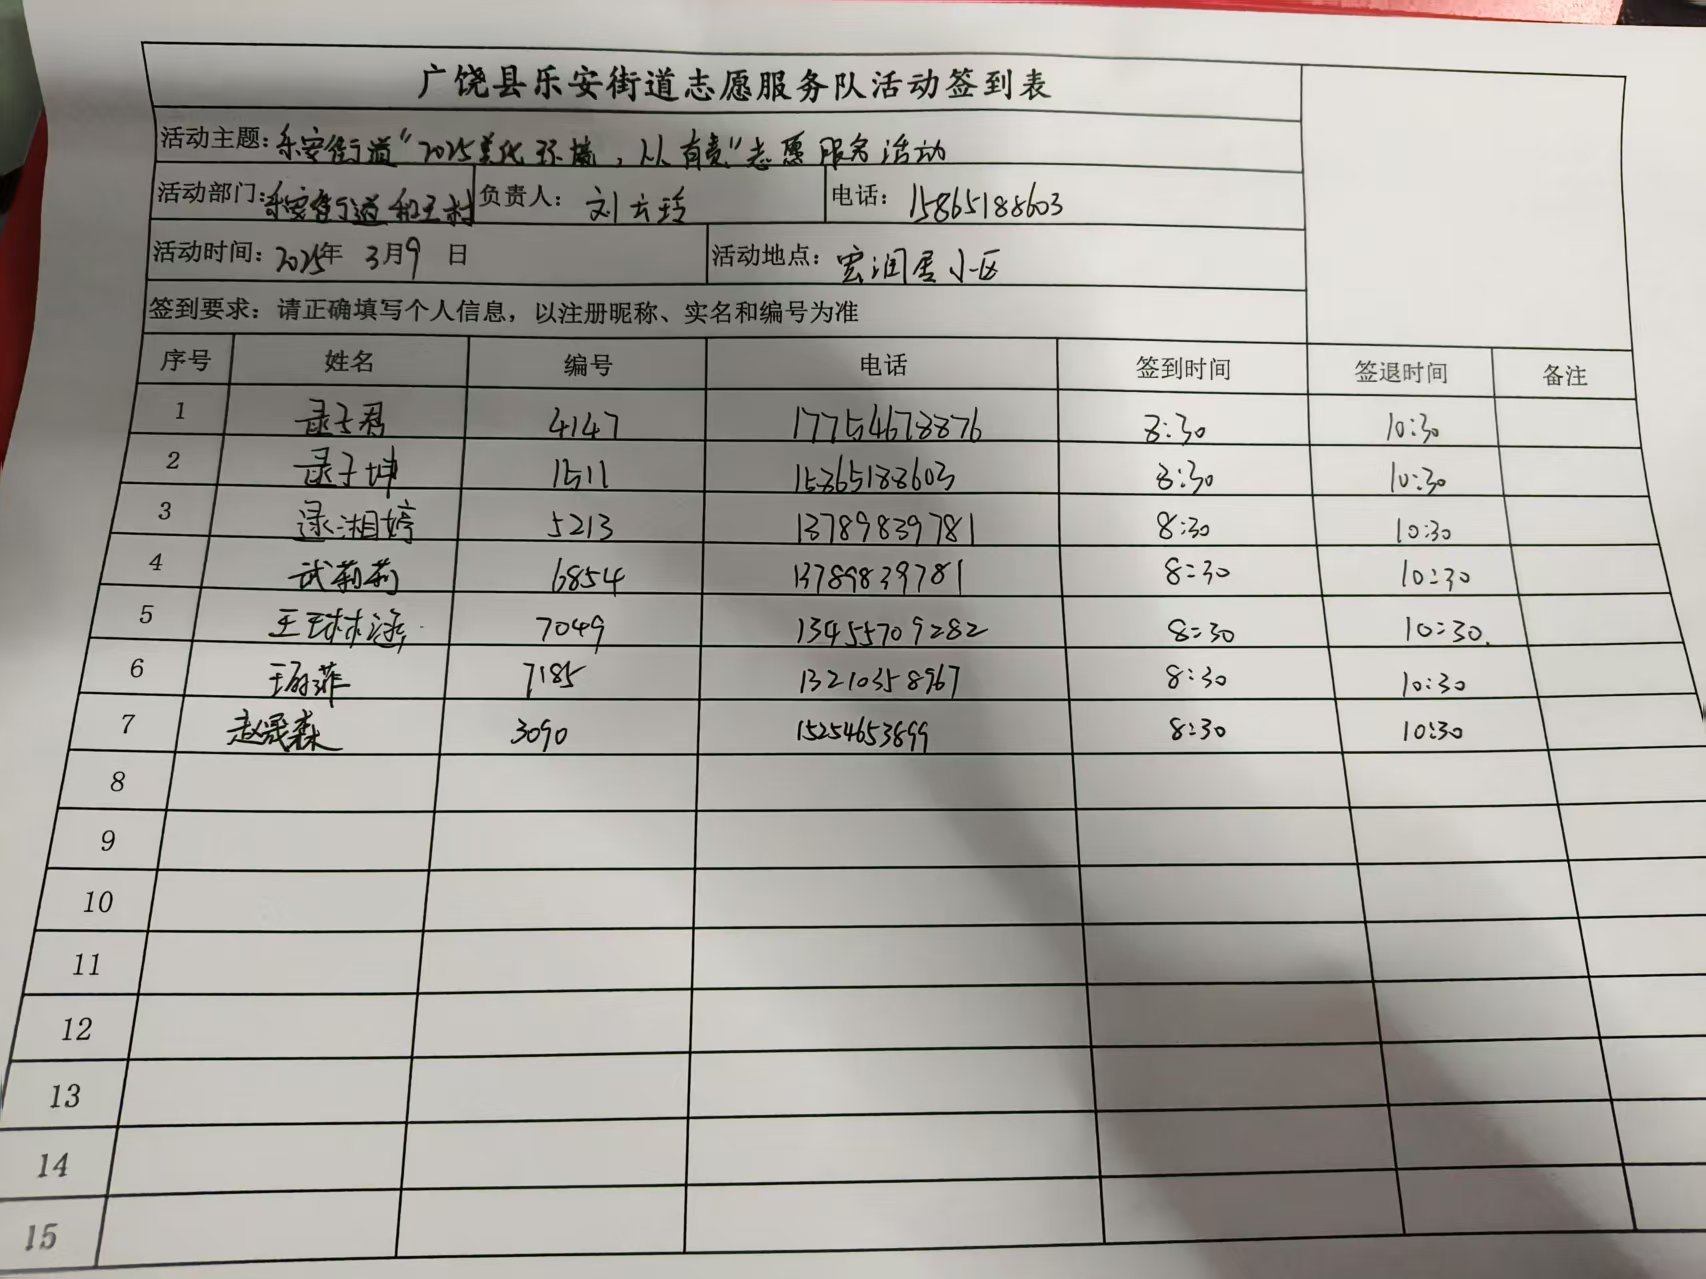 广饶县乐安街道志愿服务队活动签到表
活动主题：乐安街道“2025美化环境，从有责”志愿服务活动
活动部门：乐安街道和王村 负责人：刘云玲 电话：15865188603
活动时间：2025年 3月9 日 活动地点：宏润居小区
签到要求：请正确填写个人信息，以注册昵称、实名和编号为准
序号 姓名 编号 电话 签到时间 签退时间 备注
1 4147 17754678876 8:30 10:30
2 1511 15865188603 8:30 10:30
3 5213 13789839781 8:30 10:30
4 武莉莉 6854 13789839781 8:30 10:30
5 王琳涵 7049 13455709282 8:30 10:30
6 7185 13210358967 8:30 10:30
7 赵晟森 3090 15254653899 8:30 10:30
8
9
10
11
12
13
14
15